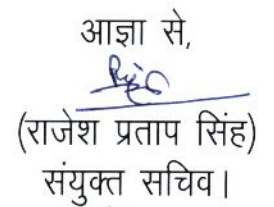 आज्ञा से,
(राजेश प्रताप सिंह)
संयुक्त सचिव।